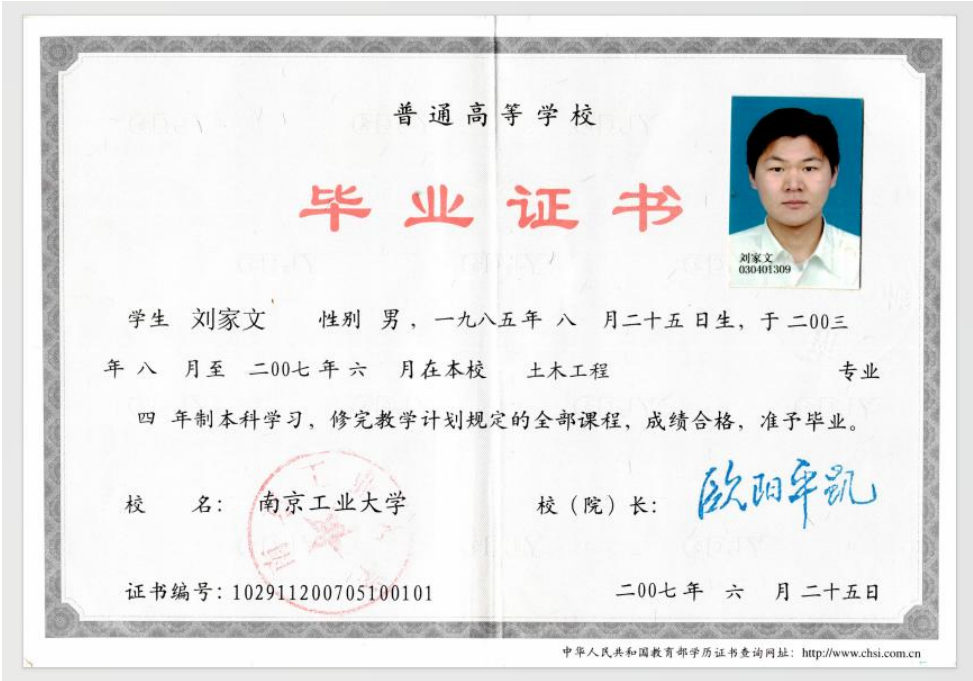 普通高等学校
毕业证书
刘家文
030401309
学生 刘家文 性别 男，一九八五年 八 月二十五日生，于二00三
年 八 月至 二00七年 六 月在本校 土木工程 专业
四 年制本科学习，修完教学计划规定的全部课程，成绩合格，准予毕业。
校 名： 南京工业大学
校（院）长： 欧阳平凯
证书编号：102911200705100101
二00七年 六 月二十五日
中华人民共和国教育部学历证书查询网址：http://www.chsi.com.cn